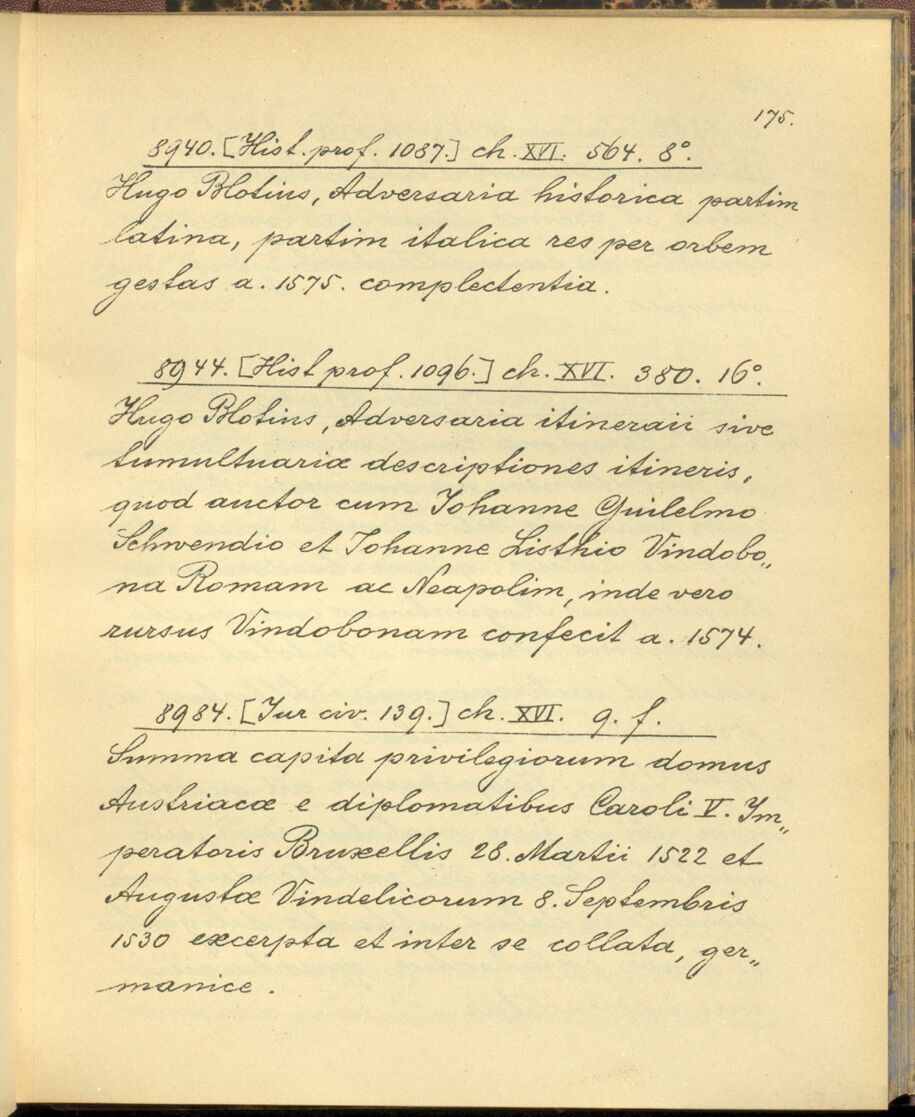 175.
8940. [Hist. prof. 1087.] ch. XVI. 564. 8°.
Hugo Blotius, Adversaria historica partim
latina, partim italica res per orbem
gestas a. 1575. complectentia.
8944. [Hist prof. 1096.] ch. XVI. 380. 16°.
Hugo Blotius, Adversaria itineraii sive
tumultuariæ descriptiones itineris,
quod auctor cum Iohanne Guilelmo
Schwendio et Iohanne Listhio Vindobo„
na Romam ac Neapolim, inde vero
rursus Vindobonam confecit a. 1574.
8984. [Iur civ. 139.] ch. XVI. 9. f.
Summa capita privilegiorum domus
Austriacæ e diplomatibus Caroli V. Im„
peratoris Bruxellis 28. Martii 1522 et
Augustæ Vindelicorum 8. Septembris
1530 excerpta et inter se collata, ger„
manice.